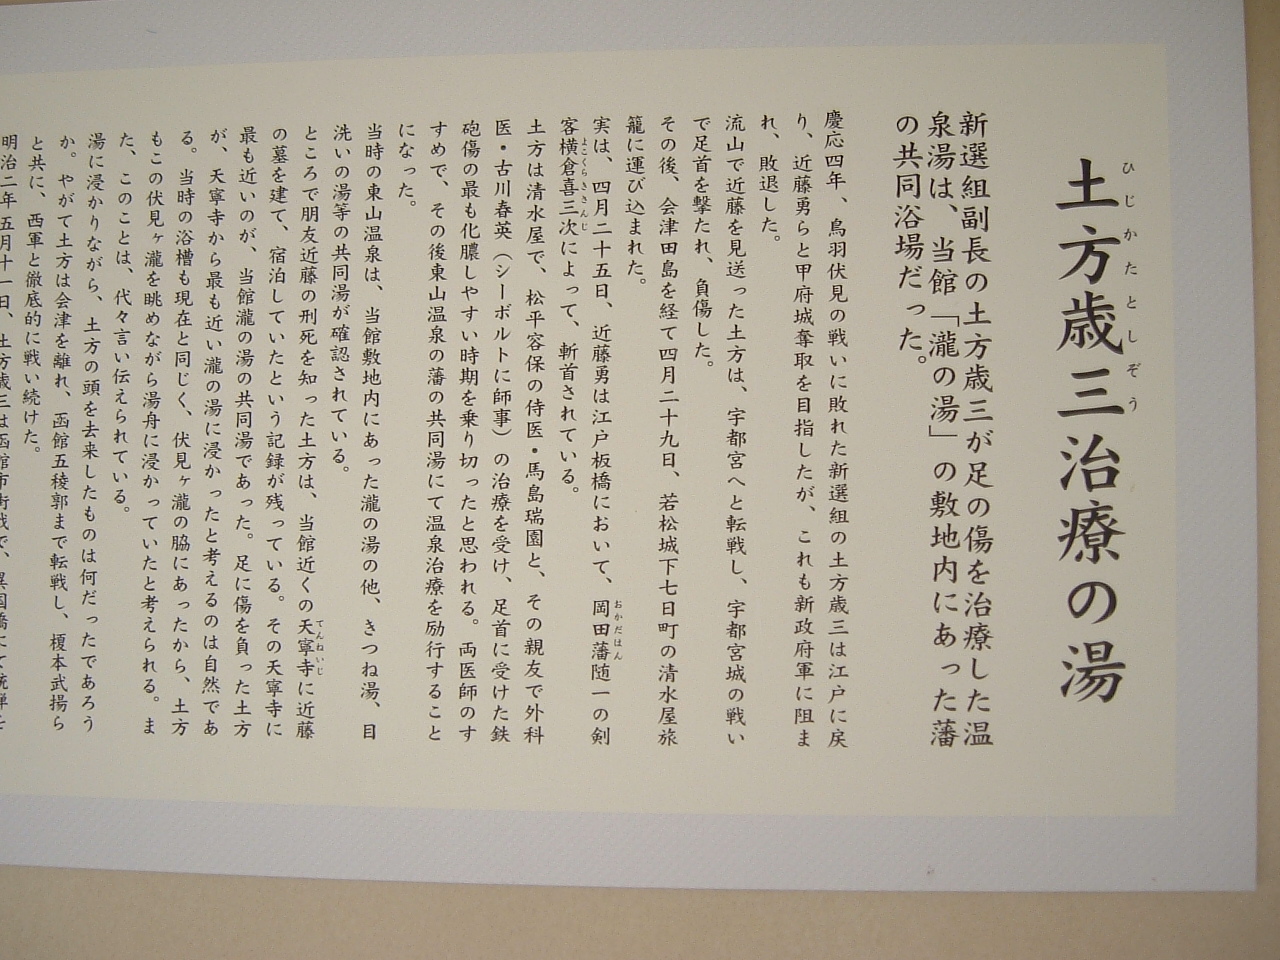 土方歳三治療の湯
ひじかたとしぞう
新選組副長の土方歳三が足の傷を治療した温
泉湯は、当館「瀧の湯」の敷地内にあった藩
の共同浴場だった。
慶応四年、鳥羽伏見の戦いに敗れた新選組の土方歳三は江戸に戻
り、近藤勇らと甲府城奪取を目指したが、これも新政府軍に阻ま
れ、敗退した。
流山で近藤を見送った土方は、宇都宮へと転戦し、宇都宮城の戦い
で足首を撃たれ、負傷した。
その後、会津田島を経て四月二十九日、若松城下七日町の清水屋旅
籠に運び込まれた。
実は、四月二十五日、近藤勇は江戸板橋において、岡田藩随一の剣
おかだはん
客横倉喜三次によって、斬首されている。
よこくらきさんじ
土方は清水屋で、松平容保の侍医・馬島瑞園と、その親友で外科
医・古川春英（シーボルトに師事）の治療を受け、足首に受けた鉄
砲傷の最も化膿しやすい時期を乗り切ったと思われる。両医師のす
すめで、その後東山温泉の藩の共同湯にて温泉治療を励行すること
になった。
当時の東山温泉は、当館敷地内にあった瀧の湯の他、きつね湯、目
洗いの湯等の共同湯が確認されている。
ところで朋友近藤の刑死を知った土方は、当館近くの天寧寺に近藤
てんねいじ
の墓を建て、宿泊していたという記録が残っている。その天寧寺に
最も近いのが、当館瀧の湯の共同湯であった。足に傷を負った土方
が、天寧寺から最も近い瀧の湯に浸かったと考えるのは自然であ
る。当時の浴槽も現在と同じく、伏見ヶ瀧の脇にあったから、土方
もこの伏見ヶ瀧を眺めながら湯舟に浸かっていたと考えられる。ま
た、このことは、代々言い伝えられている。
湯に浸かりながら、土方の頭を去来したものは何だったであろう
か。やがて土方は会津を離れ、函館五稜郭まで転戦し、榎本武揚ら
と共に、西軍と徹底的に戦い続けた。
明治二年五月十一日、土方歳三は函館市街戦で、異国橋にて銃弾を